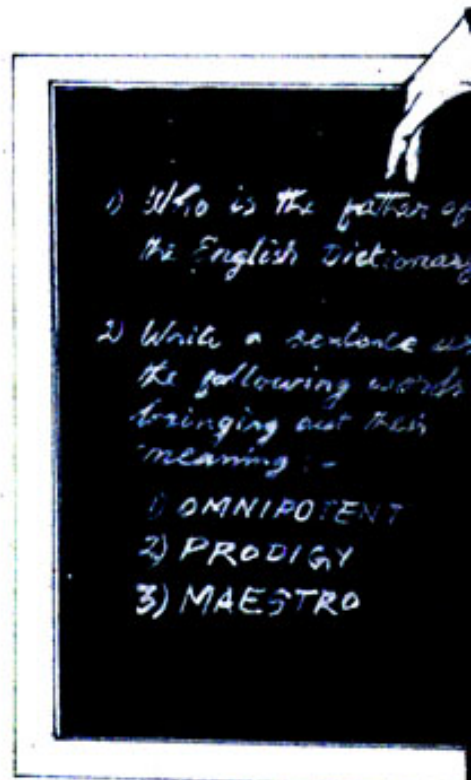 1) Who is the father of
the English Dictionary
2) Write a sentence us
the following words
bringing out their
meaning :-
1) OMNIPOTENT
2) PRODIGY
3) MAESTRO